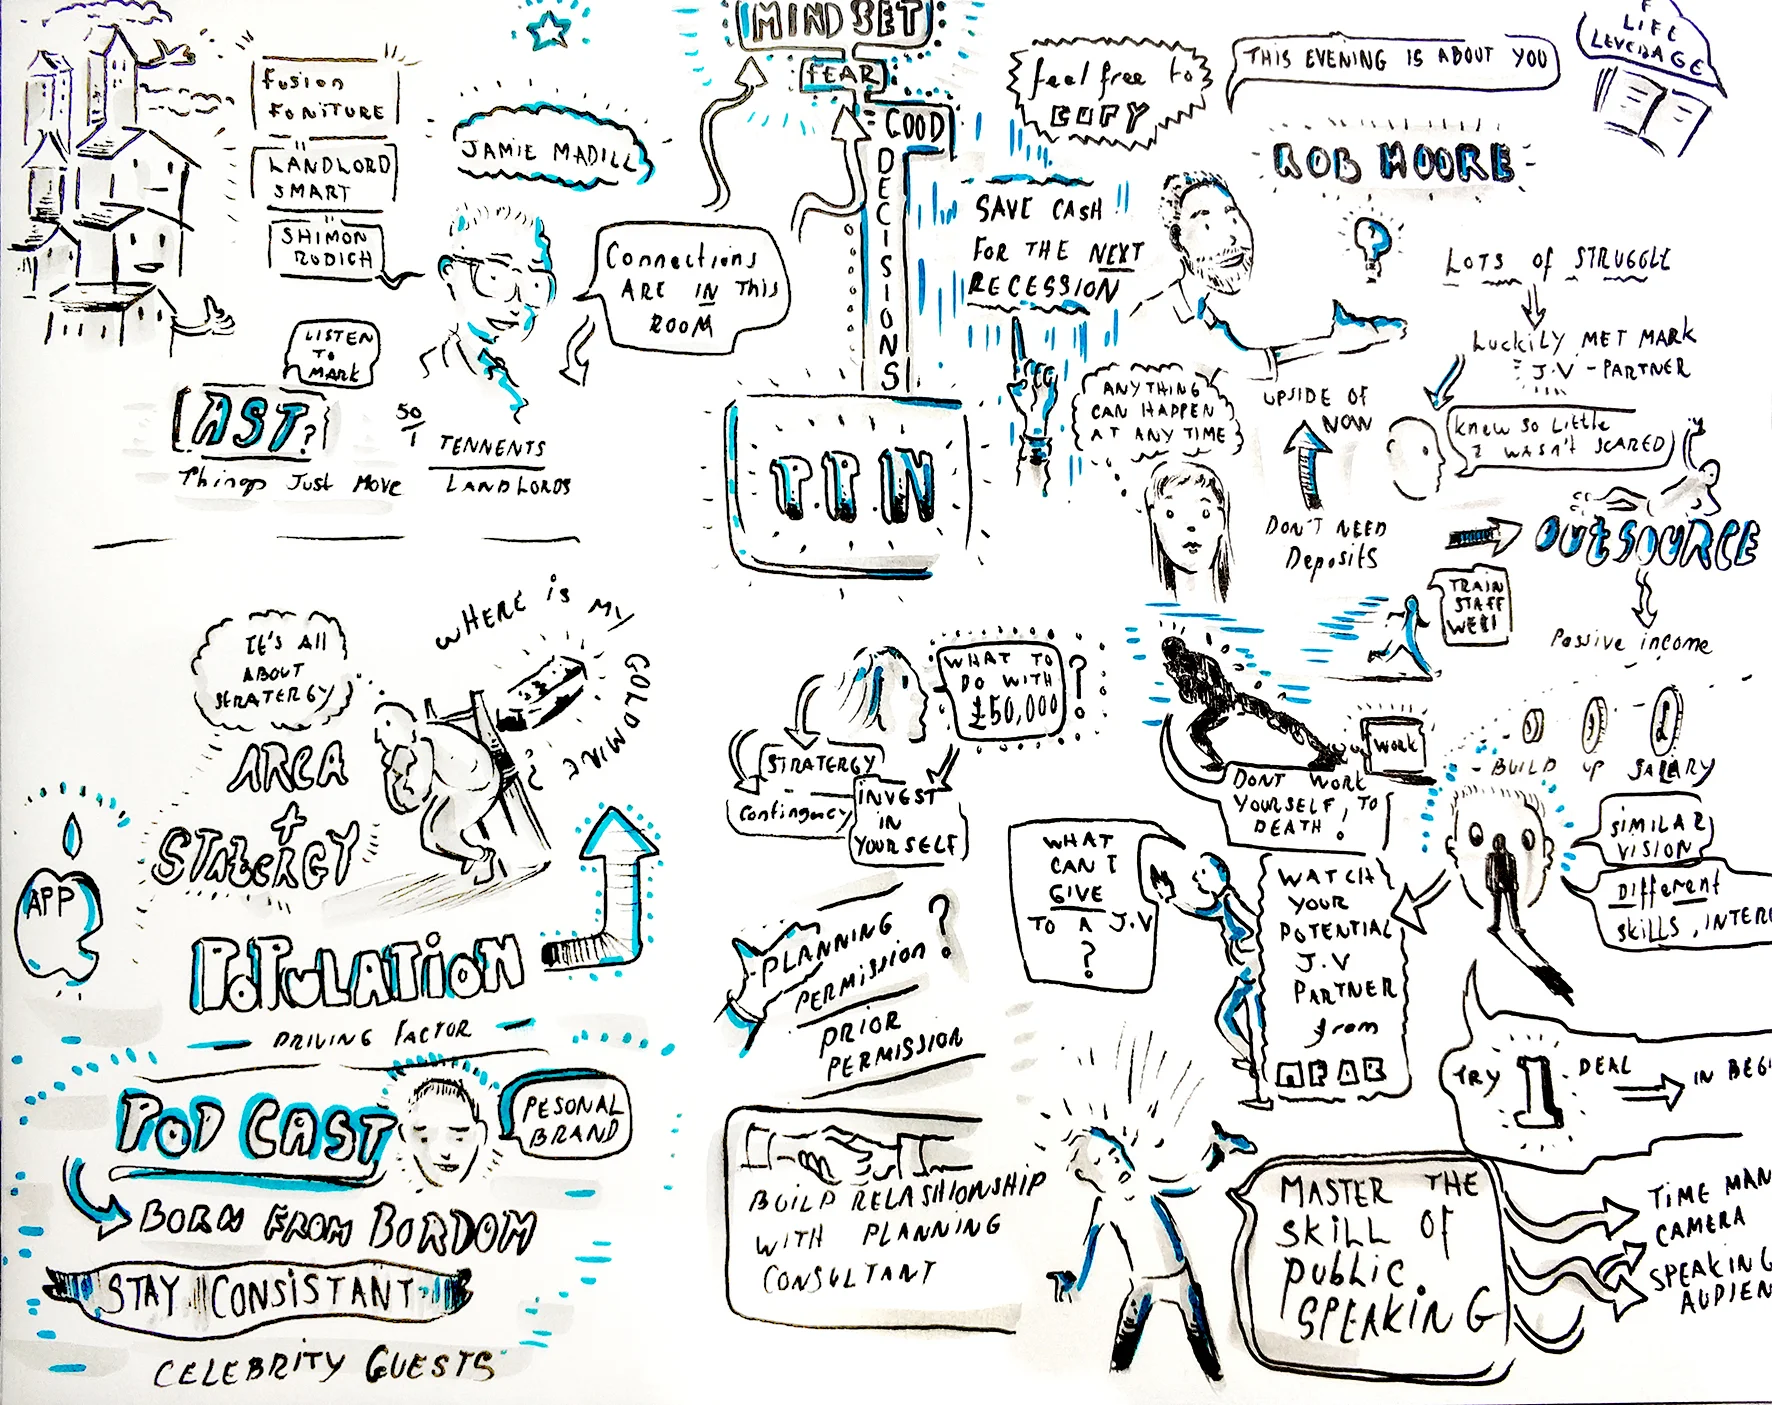 FUSION
FONITURE
LANDLORD
SMART
SHIMON
RUDICH
JAMIE MADILL
Connections
ARE IN This
ROOM
LISTEN
TO
MARK
AST?
Things Just Move
50/1
TENNENTS
LANDLORDS
MINDSET
FEAR
GOOD
DECISIONS
P.P.N
feel free to
COPY
THIS EVENING IS ABOUT YOU
LIFE
LEVERAGE
ROB MOORE
SAVE CASH!!
FOR THE NEXT
RECESSION
ANYTHING
CAN HAPPEN
AT ANY TIME
LOTS of STRUGGLE
LUCKILY MET MARK
J.V - PARTNER
UPSIDE OF
NOW
KNEW SO LITTLE
I WASN'T SCARED
DON'T NEED
Deposits
OUTSOURCE
TRAIN
STAFF
WELL
Passive income
IT'S All
ABOUT
STRATERGY
WHERE is MY
GOLDMINE?
AREA
+
STRATERGY
APP
POPULATION
DRIVING FACTOR
POD CAST
PESONAL
BRAND
BORN FROM BORDOM
STAY CONSISTANT
CELEBRITY GUESTS
WHAT TO
DO WITH
£50,000
?
STRATERGY
Contingency
INVEST
IN
YOURSELF
PLANNING
PERMISSION?
PRIOR
PERMISSION
BUILD RELASHIONSHIP
WITH PLANNING
CONSULTANT
WORK
DONT WORK
YOURSELF, TO
DEATH!
BUILD UP SALARY
SIMILAR
VISION
Different
SKILLS, INTER
WHAT
CAN I
GIVE
TO A J.V
?
WATCH
YOUR
POTENTIAL
J.V
PARTNER
from
AFAR
TRY 1 DEAL
IN BEGI
MASTER THE
SKILL OF
PUBLIC
SPEAKING
TIME MAN
CAMERA
SPEAKING
AUDIEN